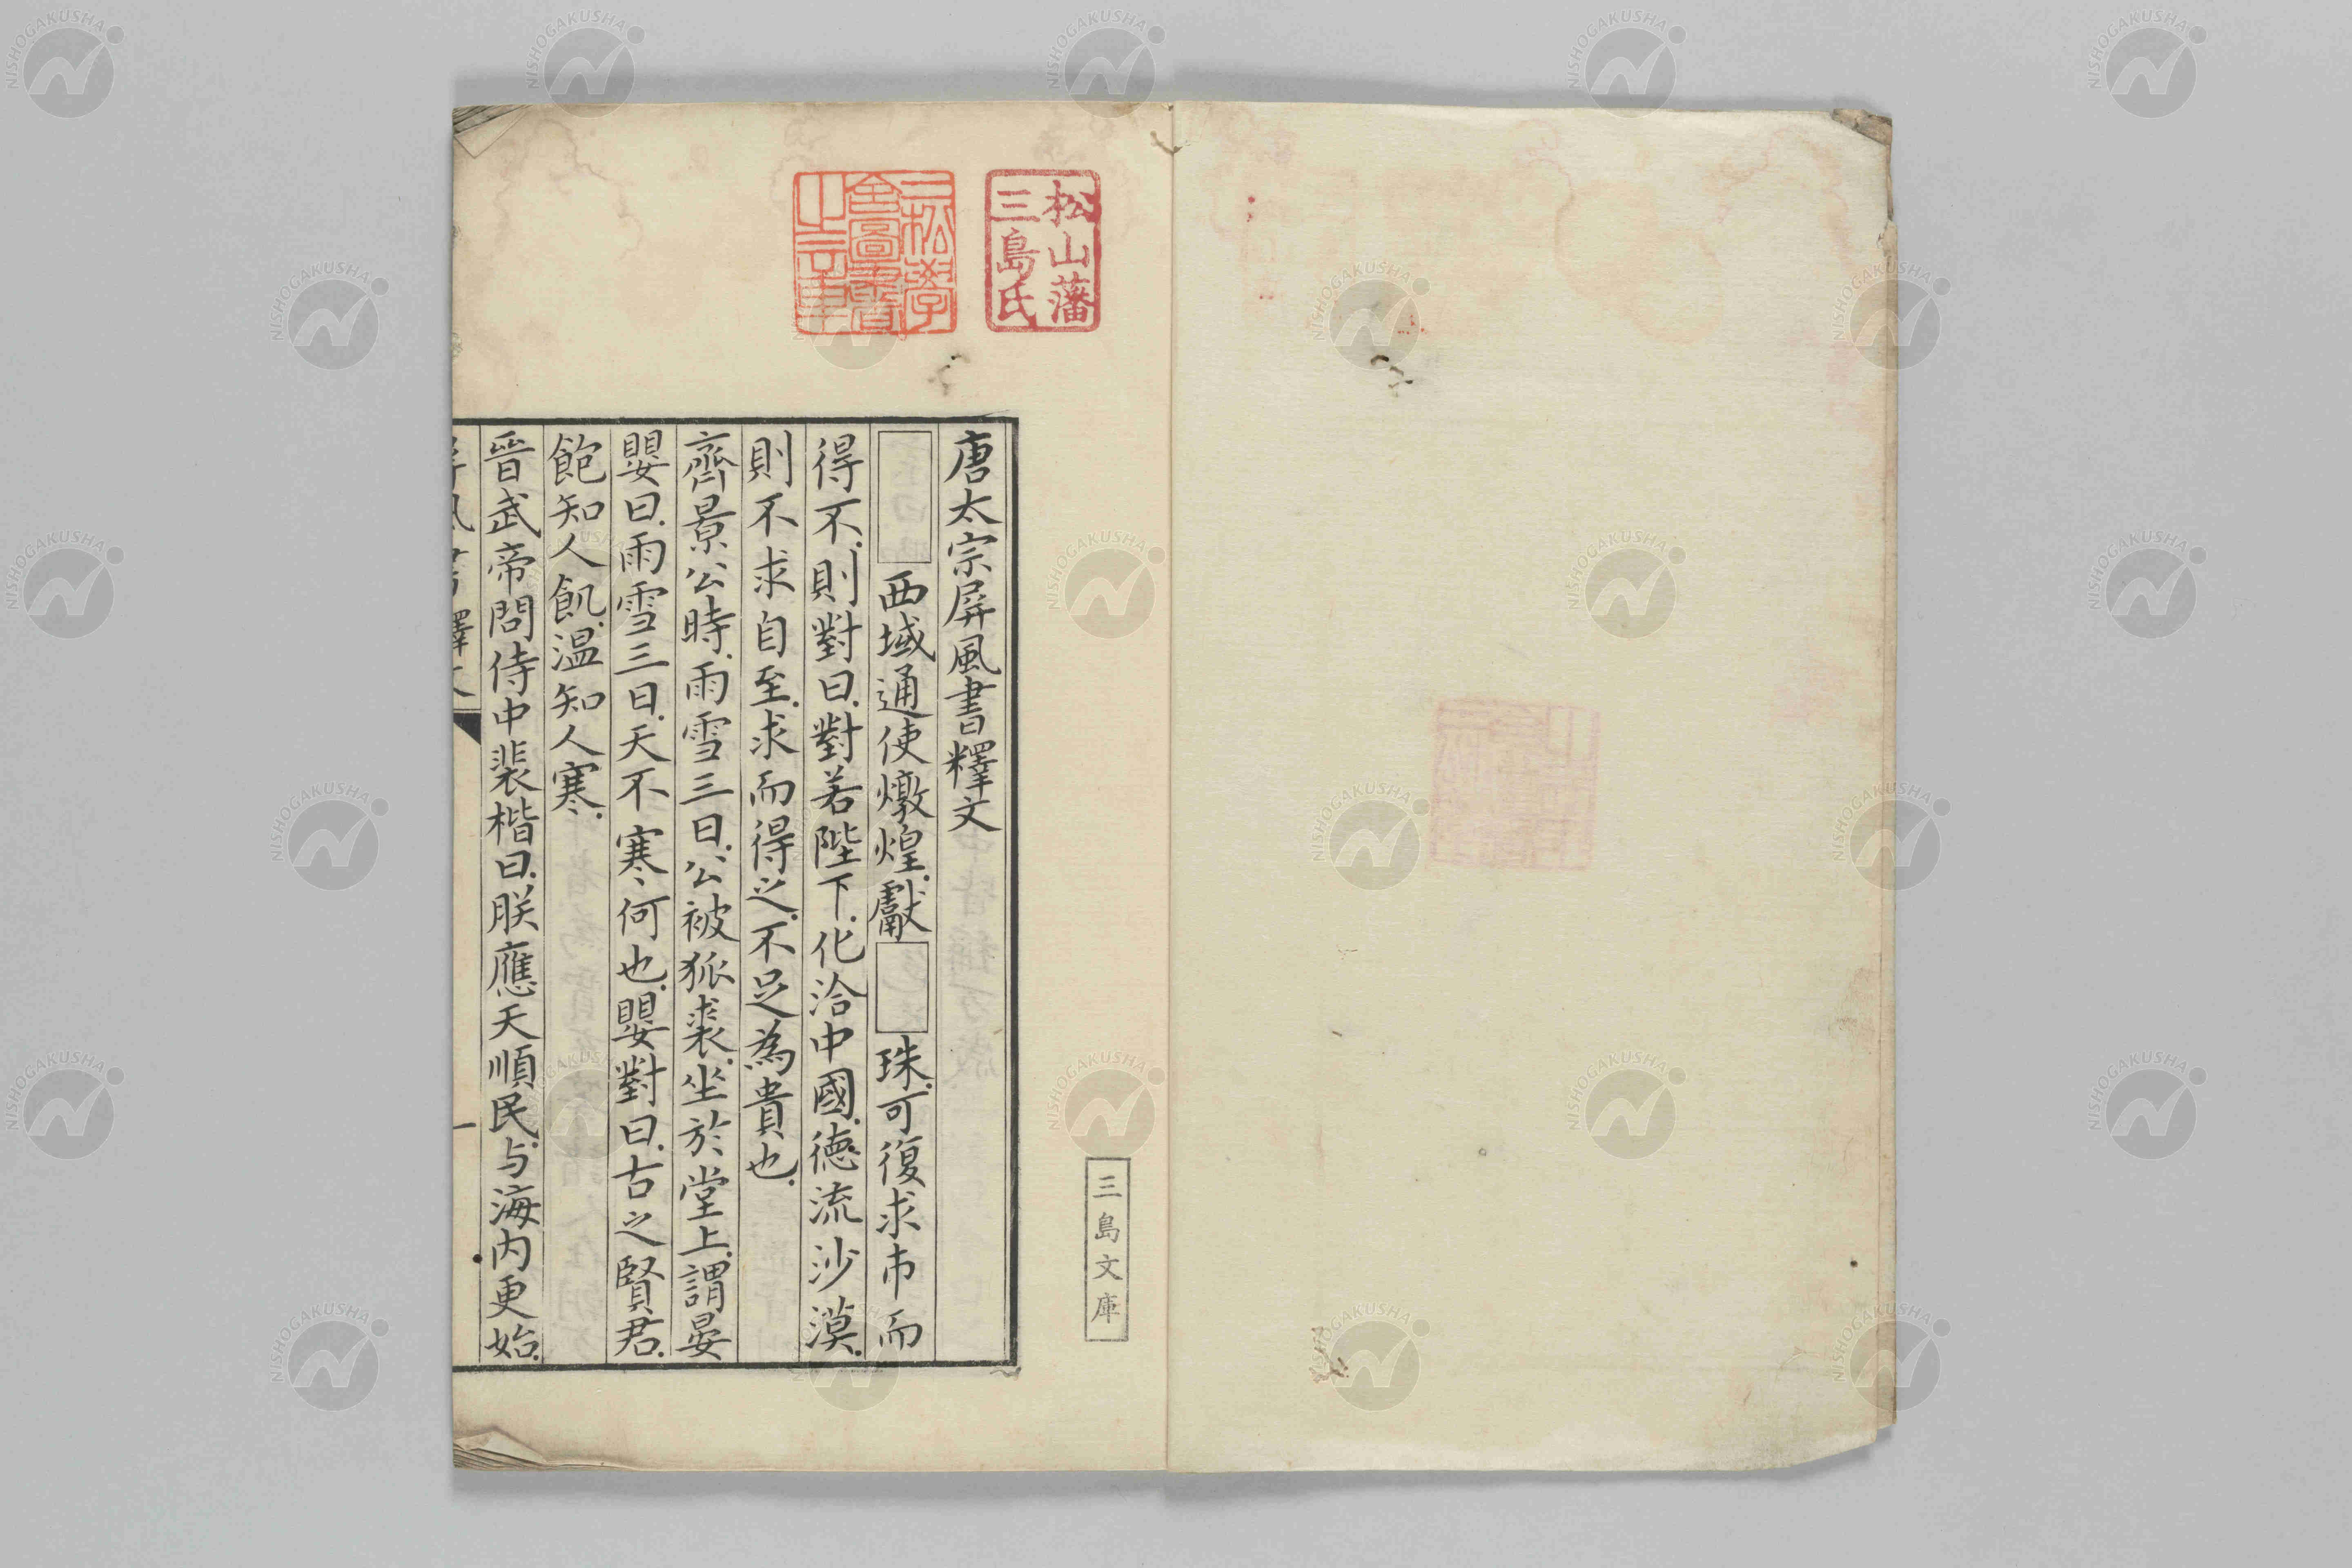 松山藩
三島氏
二松學
舍圖書
之印
三島文庫
唐太宗屏風書釋文
西域通使燉煌獻 珠可復求市而
得不則對曰對若陛下化洽中國德流沙漠
則不求自至求而得之不足為貴也
齊景公時雨雪三日公被狐裘坐於堂上謂晏
嬰曰雨雪三日天不寒何也嬰對曰古之賢君
飽知人飢溫知人寒
晉武帝問侍中裴楷曰朕應天順民与海內更始
一
NISHOGAKUSHA